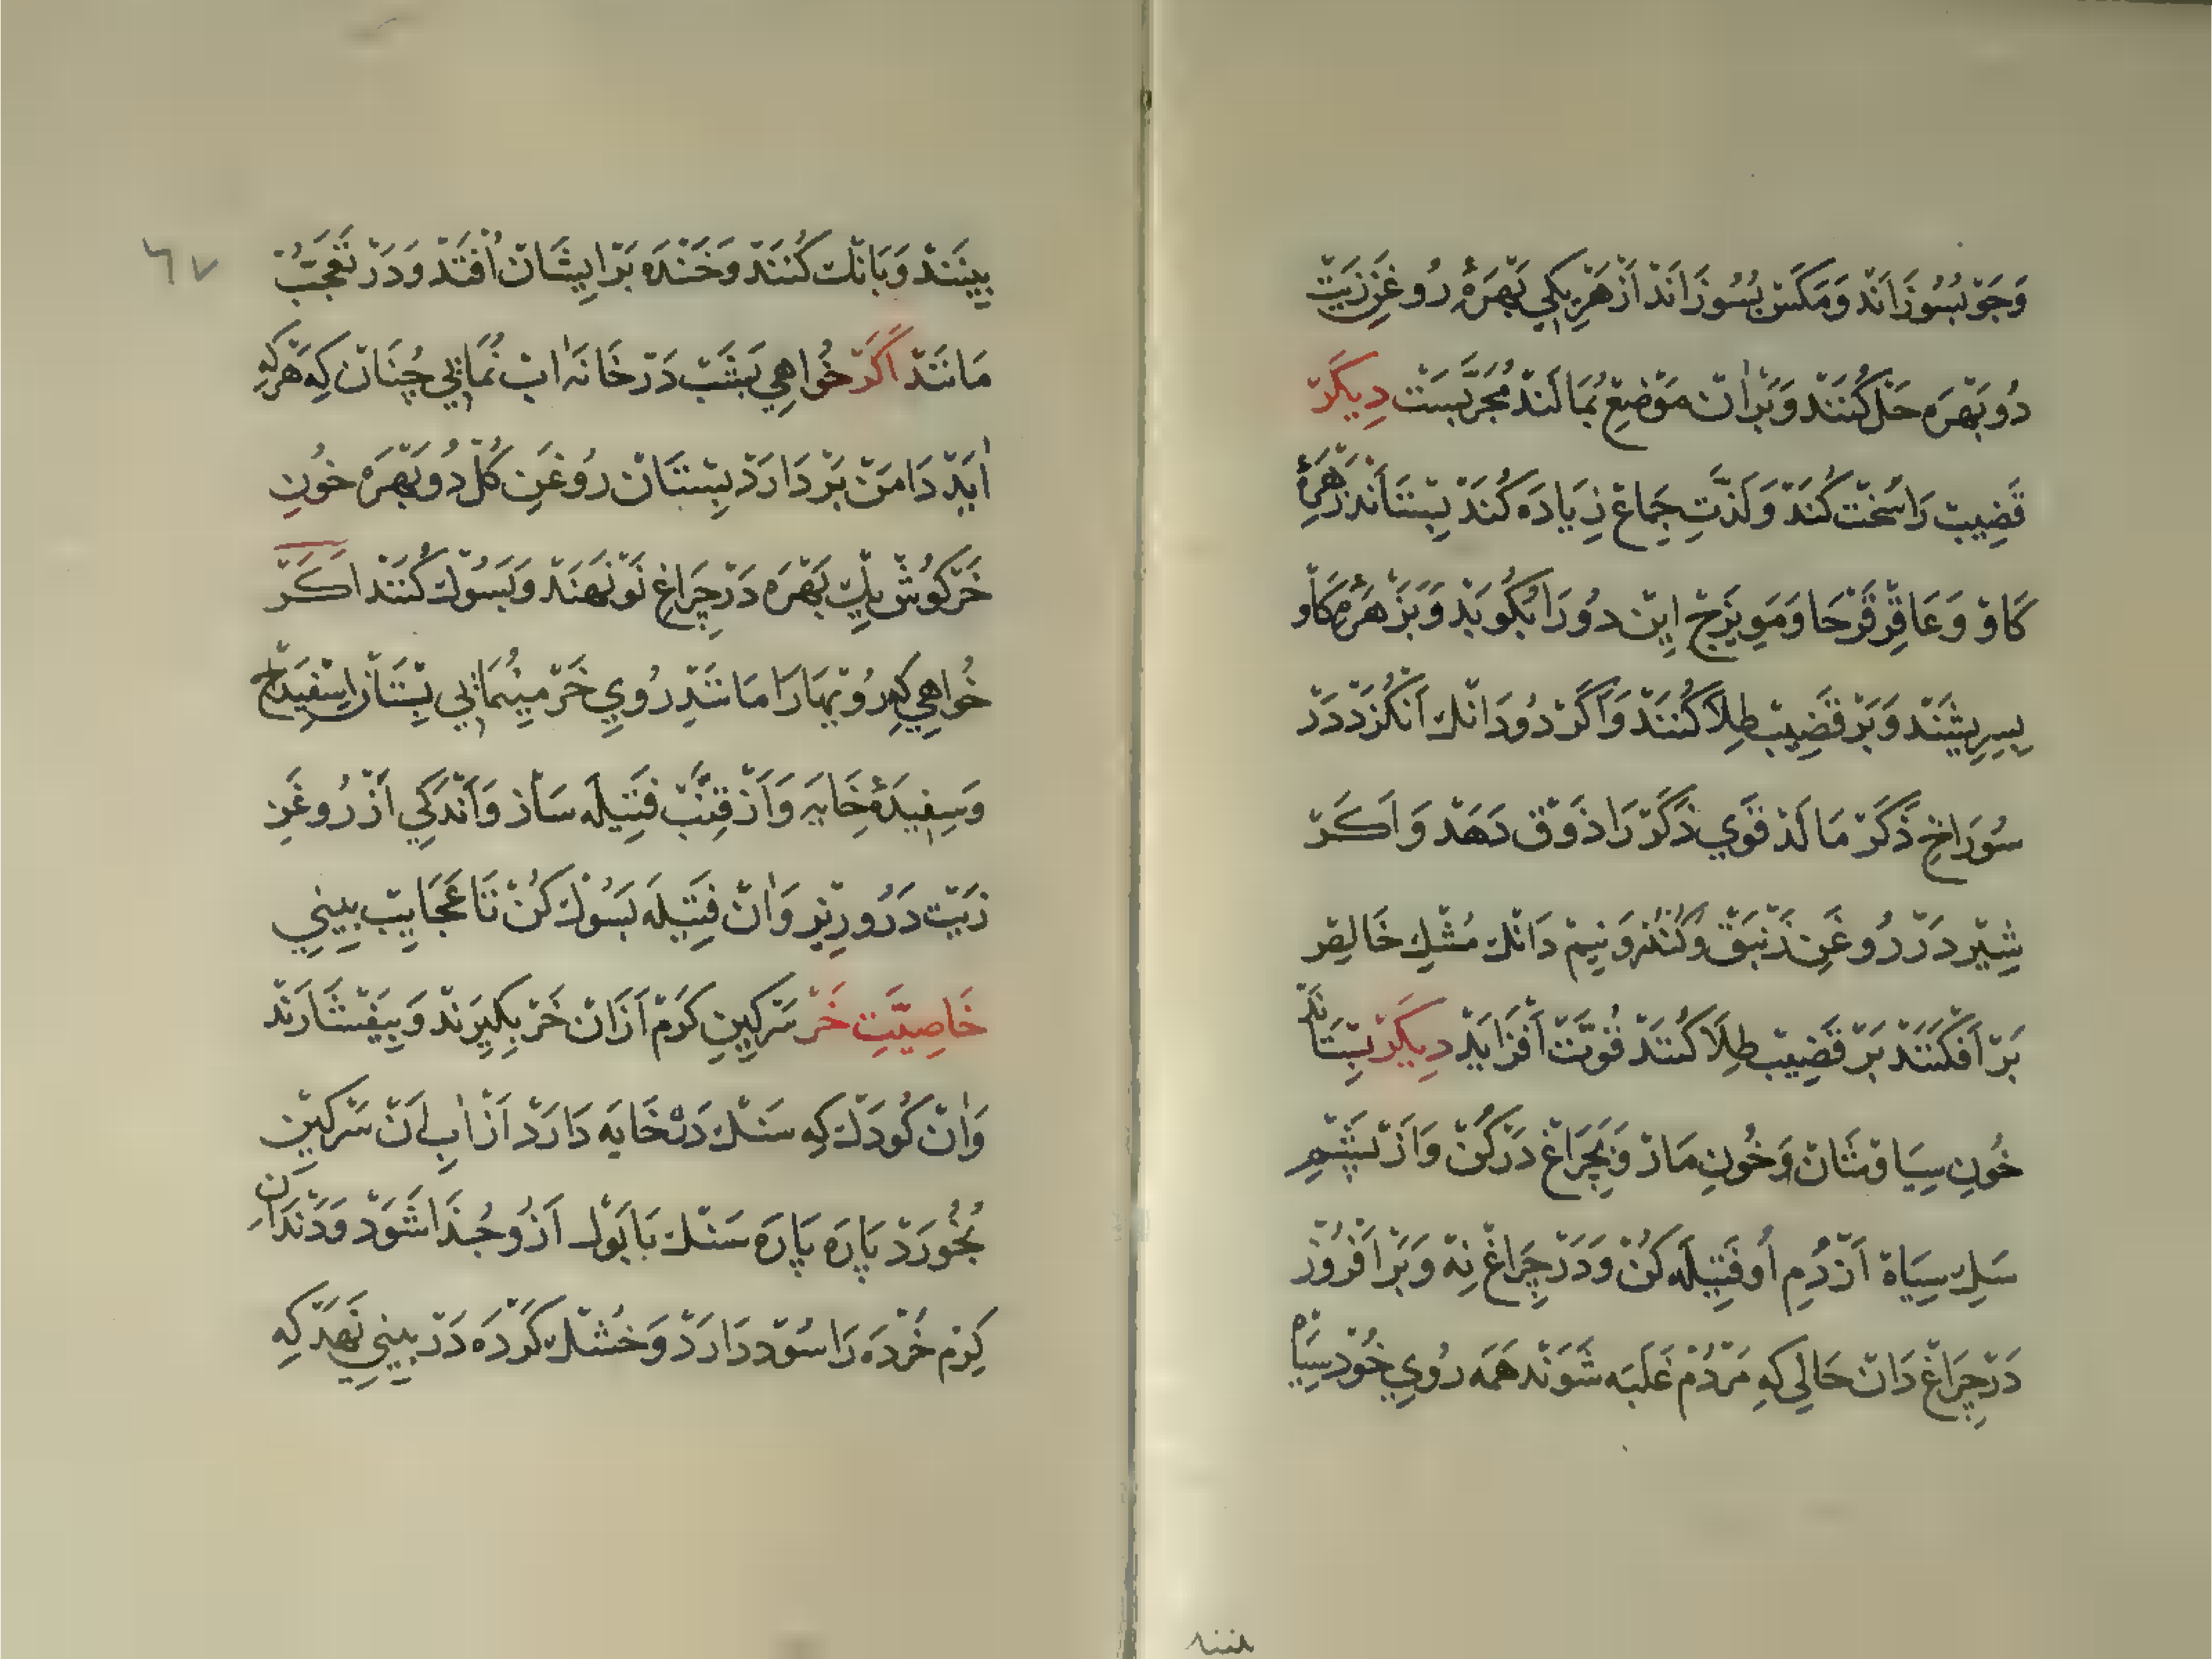 وَجَوْ بُسُوزَانَدْ وَمَكَسْ بُسُوزَانَدْ اَزْ هَرْيَكِي بَهْرَهٔ رُوغَنِ زَيْتْ
دُو بَهْرَه حَلْ كُنَنَدْ وَبَرْ اٰنْ مَوْضِعْ بُمَالَنْدْ مُجَرَّبَسْتْ دِيكَرْ
قَضِيبْ رَا سَخْتْ كُنَدْ وَلَذَّتِ جِمَاعْ زِيَادَه كُنَدْ بِسْتَانَدْ زَهْرَهٔ
كَاوْ وَعَاقِرْ قَرْحَا وَمَوِيزَجْ اِينْ دُو رَا بُكُوبَدْ وَبَزَهْرَهٔ كَاوْ
بِسِرِيشَنَدْ وَبَرْ قَضِيبْ طِلَا كُنَنَدْ وَاَكَرْ دُودَانْكْ اَنْكُزَدْ دَرْ
سُورَاخِ ذَكَرْ مَالَدْ قَوِي ذَكَرْ رَا ذَوْقْ دَهَدْ وَاَكَرْ
شِيْرْ دَرْ رُوغَنِ زَنْبَقْ وَكُنْدُ وَنِيمْ دَانْكْ مُشْكِ خَالِصْ
بَرْ اَفْكَنَنَدْ بَرْ قَضِيبْ طِلَا كُنَنَدْ قُوَّتْ اَفْزَايَدْ دِيكَرْ بِسْتَانَدْ
خُونِ سِيَاوْشَانْ وَخُونِ مَارْ وَبَچِرَاغْ دَرْكُنْ وَاَزْ پَشْمِ
سَكِ سِيَاهْ اَزْ دُمِ اُو فَتِيلَه كُنْ وَدَرْ چِرَاغْ نِهْ وَبَرْ اَفْرُوزْ
دَرْ چِرَاغْ دَانْ حَالِي كِه مَرْدُمْ غَلَبَه شَوَنْدْ هَمَه رُويِ خُودْ سِيَاهْ
٦٧
بِينَنْدْ وَبَانْكْ كُنَنَدْ وَخَنْدَه بَرْ اِيشَانْ اُفْتَدْ وَدَرْ تَعَجُّبْ
مَانَنْدْ اَكَرْ خُواهِي بَشَبْ دَرْ خَانَه اٰبْ نُمَايِي چُنَانْ كِه هَرْكِه
اٰيَدْ دَامَنْ بَرْ دَارَدْ بِسْتَانْ رُوغَنِ كُلْ دُو بَهْرَه خُونِ
خَرْكُوشْ يَكْ بَهْرَه دَرْ چِرَاغِ نَوْ نَهَنَدْ وَبَسُوْكْ كُنَنْدْ اَكَرْ
خُواهِي كِه رُوْيهَا رَا مَانَنْدِ رُويِ خَرْ مِينُمَايِي بِسْتَانْ اِسْفِيدَاجْ
وَسِفِيدَهٔ خَايَه وَاَزْ قِنَّبْ فَتِيلَه سَازْ وَاَنْدَكِي اَزْ رُوغَنِ
زَيْتْ دَرُو رِيزْ وَاٰنْ فَتِيلَه بَسُوْكْ كُنْ تَا عَجَايِبْ بِينِي
خَاصِيَّتِ خَرْ سَرْكِينِ كَرْمْ اَزَانْ خَرْ بِكِيرَنْدْ وَبِيَفْشَارَنْدْ
وَاٰنْ كُودَكْ كِه سَنْكْ دَرْ خَايَه دَارَدْ اَزْ اٰبِ اٰنْ سَرْكِينْ
بُخُورَدْ پَارَه پَارَه سَنْكْ بَا بَوْلْ اَزُو جُدَا شَوَدْ وَدَنْدَانِ
كِرْمْ خُرْدَه رَا سُوْدْ دَارَدْ وَخُشْكْ كَرْدَه دَرْ بِينِي نَهَدْ كِه